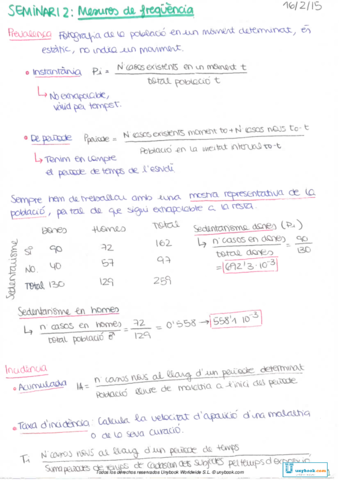 SEMINARI 2: Mesures de freqüència
16/2/15
Prevalença Fotografia de la població en un moment determinat, és
estàtic, no indica un moviment.
• Instantània Pi = N casos existents en un moment t
total població t
↳ No extrapolable,
vàlid per temps t.
• De període Pperiode = N casos existents moment t0 + N casos nous t0-t
Població en la meitat interval t0-t
↳ Tenim en compte
el període de temps de l'estudi
Sempre hem de treballar amb una mostra representativa de la
població, per tal de que sigui extrapolable a la resta.
Sedentarisme
Dones Homes Total
SÍ 90 72 162
NO. 40 57 97
Total 130 129 259
Sedentarisme dones (P.)
↳ n casos en dones = 90
total dones 130
= 692'3·10⁻³
Sedentarisme en homes
↳ n casos en homes = 72 = 0'558 → 558'1 10⁻³
total població ♂ 129
Incidència
• Acumulada IA = n casos nous al llarg d'un període determinat
Població lliure de malaltia a l'inici del període
• Taxa d'incidència: Calcula la velocitat d'aparició d'una malaltia
o de la seva curació.
Ti N casos nous al llarg d'un període de temps
Suma períodes de temps de cadascun dels subjectes pel temps d'exposició
Todos los derechos reservados Unybook Worldwide S.L. © unybook.com
unybook.com